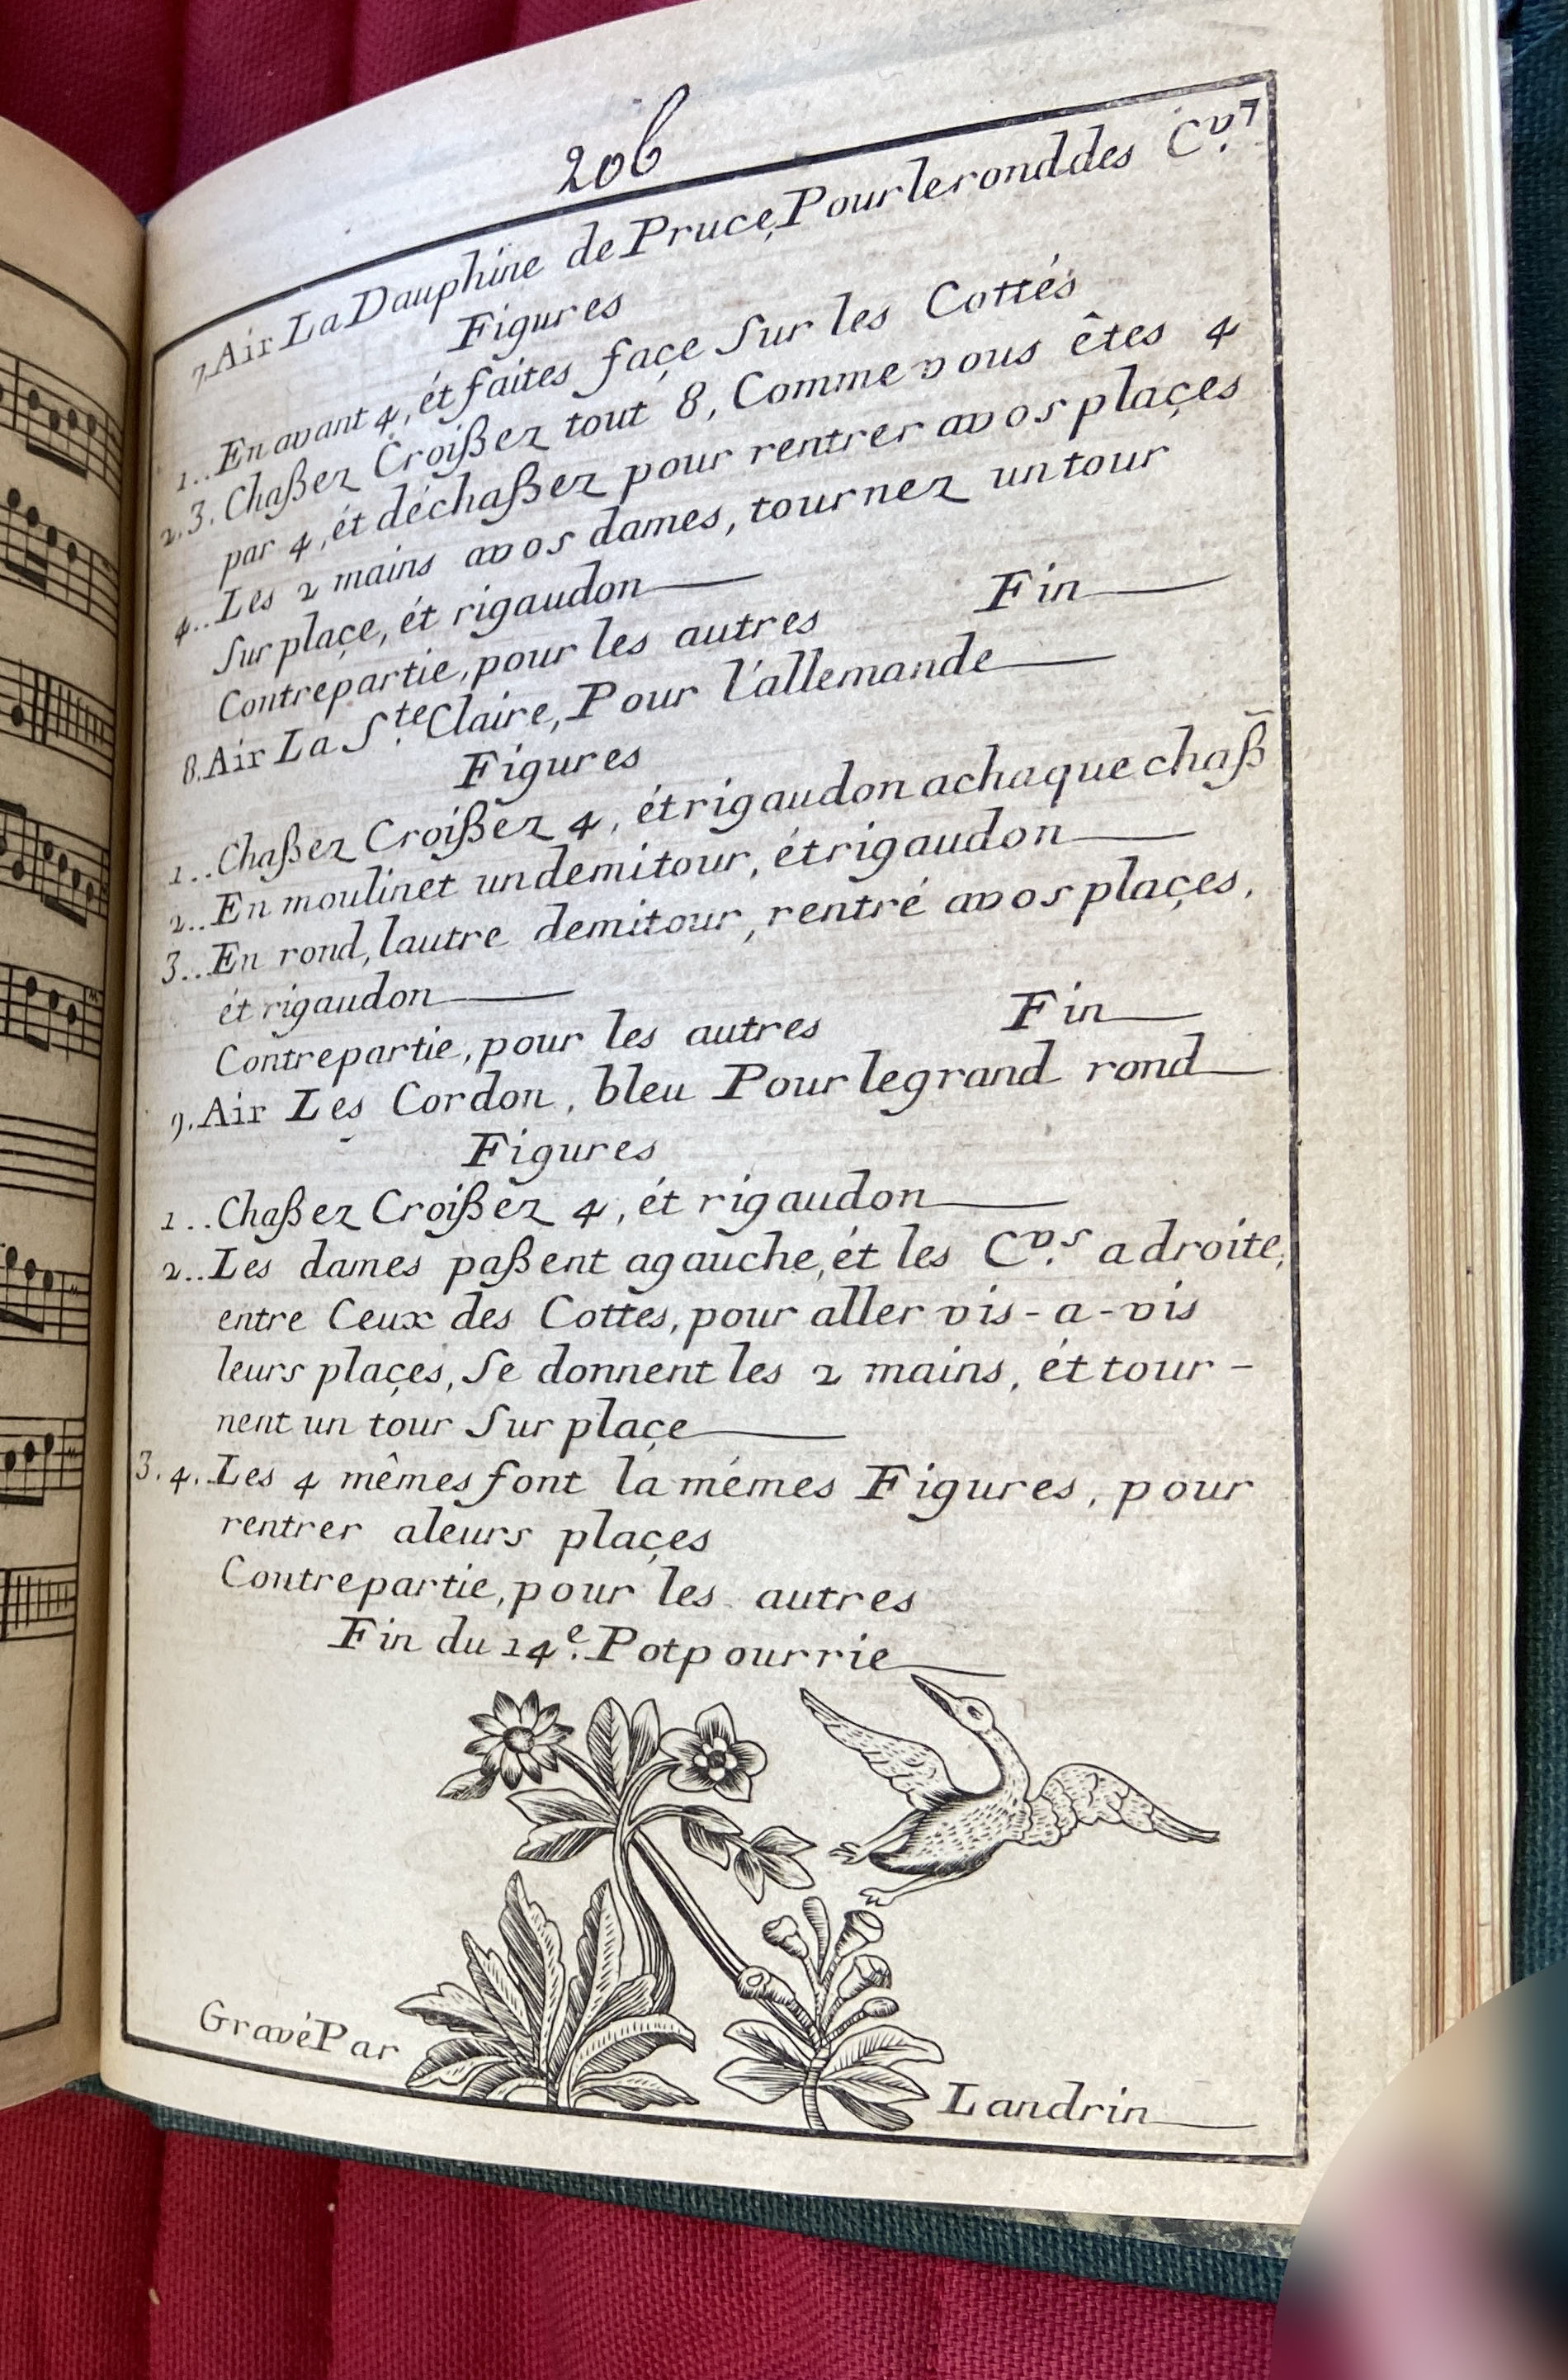 206
7. Air La Dauphine de Pruce, Pour le rond des C.v7
Figures
1.. En avant 4, ét faites façe Sur les Cottés
2.3. Chaßez Croißez tout 8, Comme vous êtes 4
par 4, ét déchaßez pour rentrer a vos plaçes
4.. Les 2 mains a vos dames, tournez un tour
Sur plaçe, ét rigaudon
Contrepartie, pour les autres Fin
8. Air La S.te Claire, Pour l'allemande
Figures
1.. Chaßez Croißez 4, ét rigaudon a chaque chaß
2.. En moulinet un demi tour, ét rigaudon
3.. En rond, lautre demi tour, rentré a vos plaçes,
ét rigaudon
Contrepartie, pour les autres Fin
9. Air Les Cordon, bleu Pour le grand rond
Figures
1.. Chaßez Croißez 4, ét rigaudon
2.. Les dames paßent a gauche, ét les C.vs a droite,
entre Ceux des Cottes, pour aller vis-a-vis
leurs plaçes, Se donnent les 2 mains, ét tour-
nent un tour Sur plaçe
3.4. Les 4 mêmes font la mémes Figures, pour
rentrer a leurs plaçes
Contrepartie, pour les autres
Fin du 14.e Potpourrie
Gravé Par Landrin